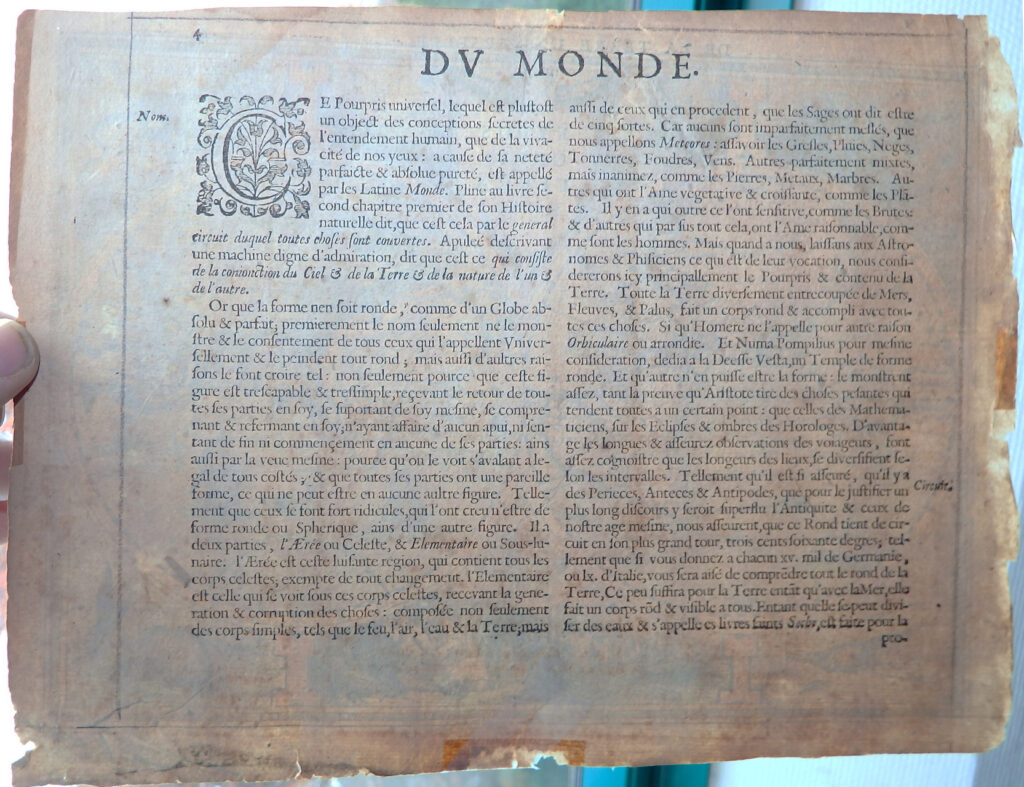 4
DV MONDE.
Nom.
CE Pourpris univerſel, lequel eſt pluſtoſt
un object des conceptions ſecretes de
l'entendement humain, que de la viva-
cité de nos yeux: a cauſe de ſa neteté
parfaicte & abſolue pureté, eſt appellé
par les Latins Monde. Pline au livre ſe-
cond chapitre premier de ſon Hiſtoire
naturelle dit, que ceſt cela par le general
circuit duquel toutes choſes ſont couvertes. Apuleé deſcrivant
une machine digne d'admiration, dit que ceſt ce qui conſiſte
de la conionction du Ciel & de la Terre & de la nature de l'un &
de l'autre.
Or que la forme nen ſoit ronde, comme d'un Globe ab-
ſolu & parfait; premierement le nom ſeulement ne le mon-
ſtre & le conſentement de tous ceux qui l'appellent Vniver-
ſellement & le peindent tout rond; mais auſſi d'aultres rai-
ſons le font croire tel: non ſeulement pource que ceſte fi-
gure eſt treſcapable & treſſimple, reçevant le retour de tou-
tes ſes parties en ſoy, ſe ſuportant de ſoy meſme, ſe compre-
nant & refermant en ſoy, n'ayant affaire d'aucun apui, ni ſen-
tant de fin ni commençement en aucune de ſes parties: ains
auſſi par la veue meſme: pource qu'on le voit s'avalant a le-
gal de tous coſtés, & que toutes ſes parties ont une pareille
forme, ce qui ne peut eſtre en aucune aultre figure. Telle-
ment que ceux ſe font fort ridicules, qui l'ont creu n'eſtre de
forme ronde ou Spherique, ains d'une autre figure. Il a
deux parties, l'Ærée ou Celeſte, & Elementaire ou Sous-lu-
naire. l'Ærée eſt ceſte luiſante region, qui contient tous les
corps celeſtes, exempte de tout changement. l'Elementaire
eſt celle qui ſe voit ſous ces corps celeſtes, recevant la gene-
ration & corruption des choſes: compoſée non ſeulement
des corps ſimples, tels que le feu, l'air, l'eau & la Terre; mais
auſſi de ceux qui en procedent, que les Sages ont dit eſtre
de cinq ſortes. Car aucuns ſont imparfaitement meſlés, que
nous appellons Meteores: aſſavoir les Greſles, Pluies, Neges,
Tonnerres, Foudres, Vens. Autres parfaitement mixtes,
mais inanimez, comme les Pierres, Metaux, Marbres. Au-
tres qui ont l'Ame vegetative & croiſſante, comme les Plā-
tes. Il y en a qui outre ce l'ont ſenſitive, comme les Brutes:
& d'autres qui par ſus tout cela, ont l'Ame raiſonnable, com-
me ſont les hommes. Mais quand a nous, laiſſans aux Aſtro-
nomes & Phiſiciens ce qui eſt de leur vocation, nous conſi-
dererons icy principallement le Pourpris & contenu de la
Terre. Toute la Terre diverſement entrecoupée de Mers,
Fleuves, & Palus, fait un corps rond & accompli avec tou-
tes ces choſes. Si qu'Homere ne l'appelle pour autre raiſon
Orbiculaire ou arrondie. Et Numa Pompilius pour meſme
conſideration, dedia a la Deeſſe Veſta, un Temple de forme
ronde. Et qu'autre n'en puiſſe eſtre la forme: le monſtrent
aſſez, tant la preuve qu'Ariſtote tire des choſes peſantes qui
tendent toutes a un certain point: que celles des Mathema-
ticiens, ſur les Eclipſes & ombres des Horologes. D'avanta-
ge les longues & aſſeurez obſervations des voiageurs, font
aſſez cognoiſtre que les longeurs des lieux, ſe diverſifient ſe-
lon les intervalles. Tellement qu'il eſt ſi aſſeuré, qu'il y a
des Perieces, Anteces & Antipodes, que pour le juſtifier un
plus long diſcours y ſeroit ſuperflu l'Antiquite & ceux de
noſtre age meſme, nous aſſeurent, que ce Rond tient de cir-
cuit en ſon plus grand tour, trois cents ſoixante degres; tel-
lement que ſi vous donnez a chacun xv. mil de Germanie,
ou lx. d'Italie, vous ſera aiſé de comprēdre tout le rond de la
Terre, Ce peu ſuffira pour la Terre entāt qu'avec la Mer, elle
fait un corps rōd & viſible a tous. Entant quelle ſe peut divi-
ſer des eaux & s'appelle es livres ſaints Seche, eſt faite pour la
pro-
Circuit.